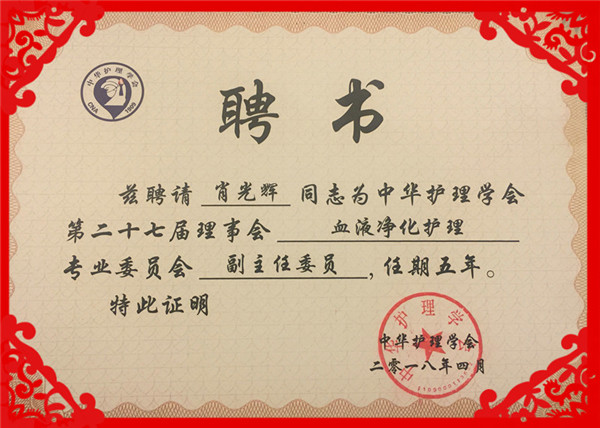 中华护理学会
CNA 1909
聘书
兹聘请 肖光辉 同志为中华护理学会
第二十七届理事会 血液净化护理
专业委员会 副主任委员,任期五年。
特此证明
中华护理学会
中华护理学会
二零一八年四月